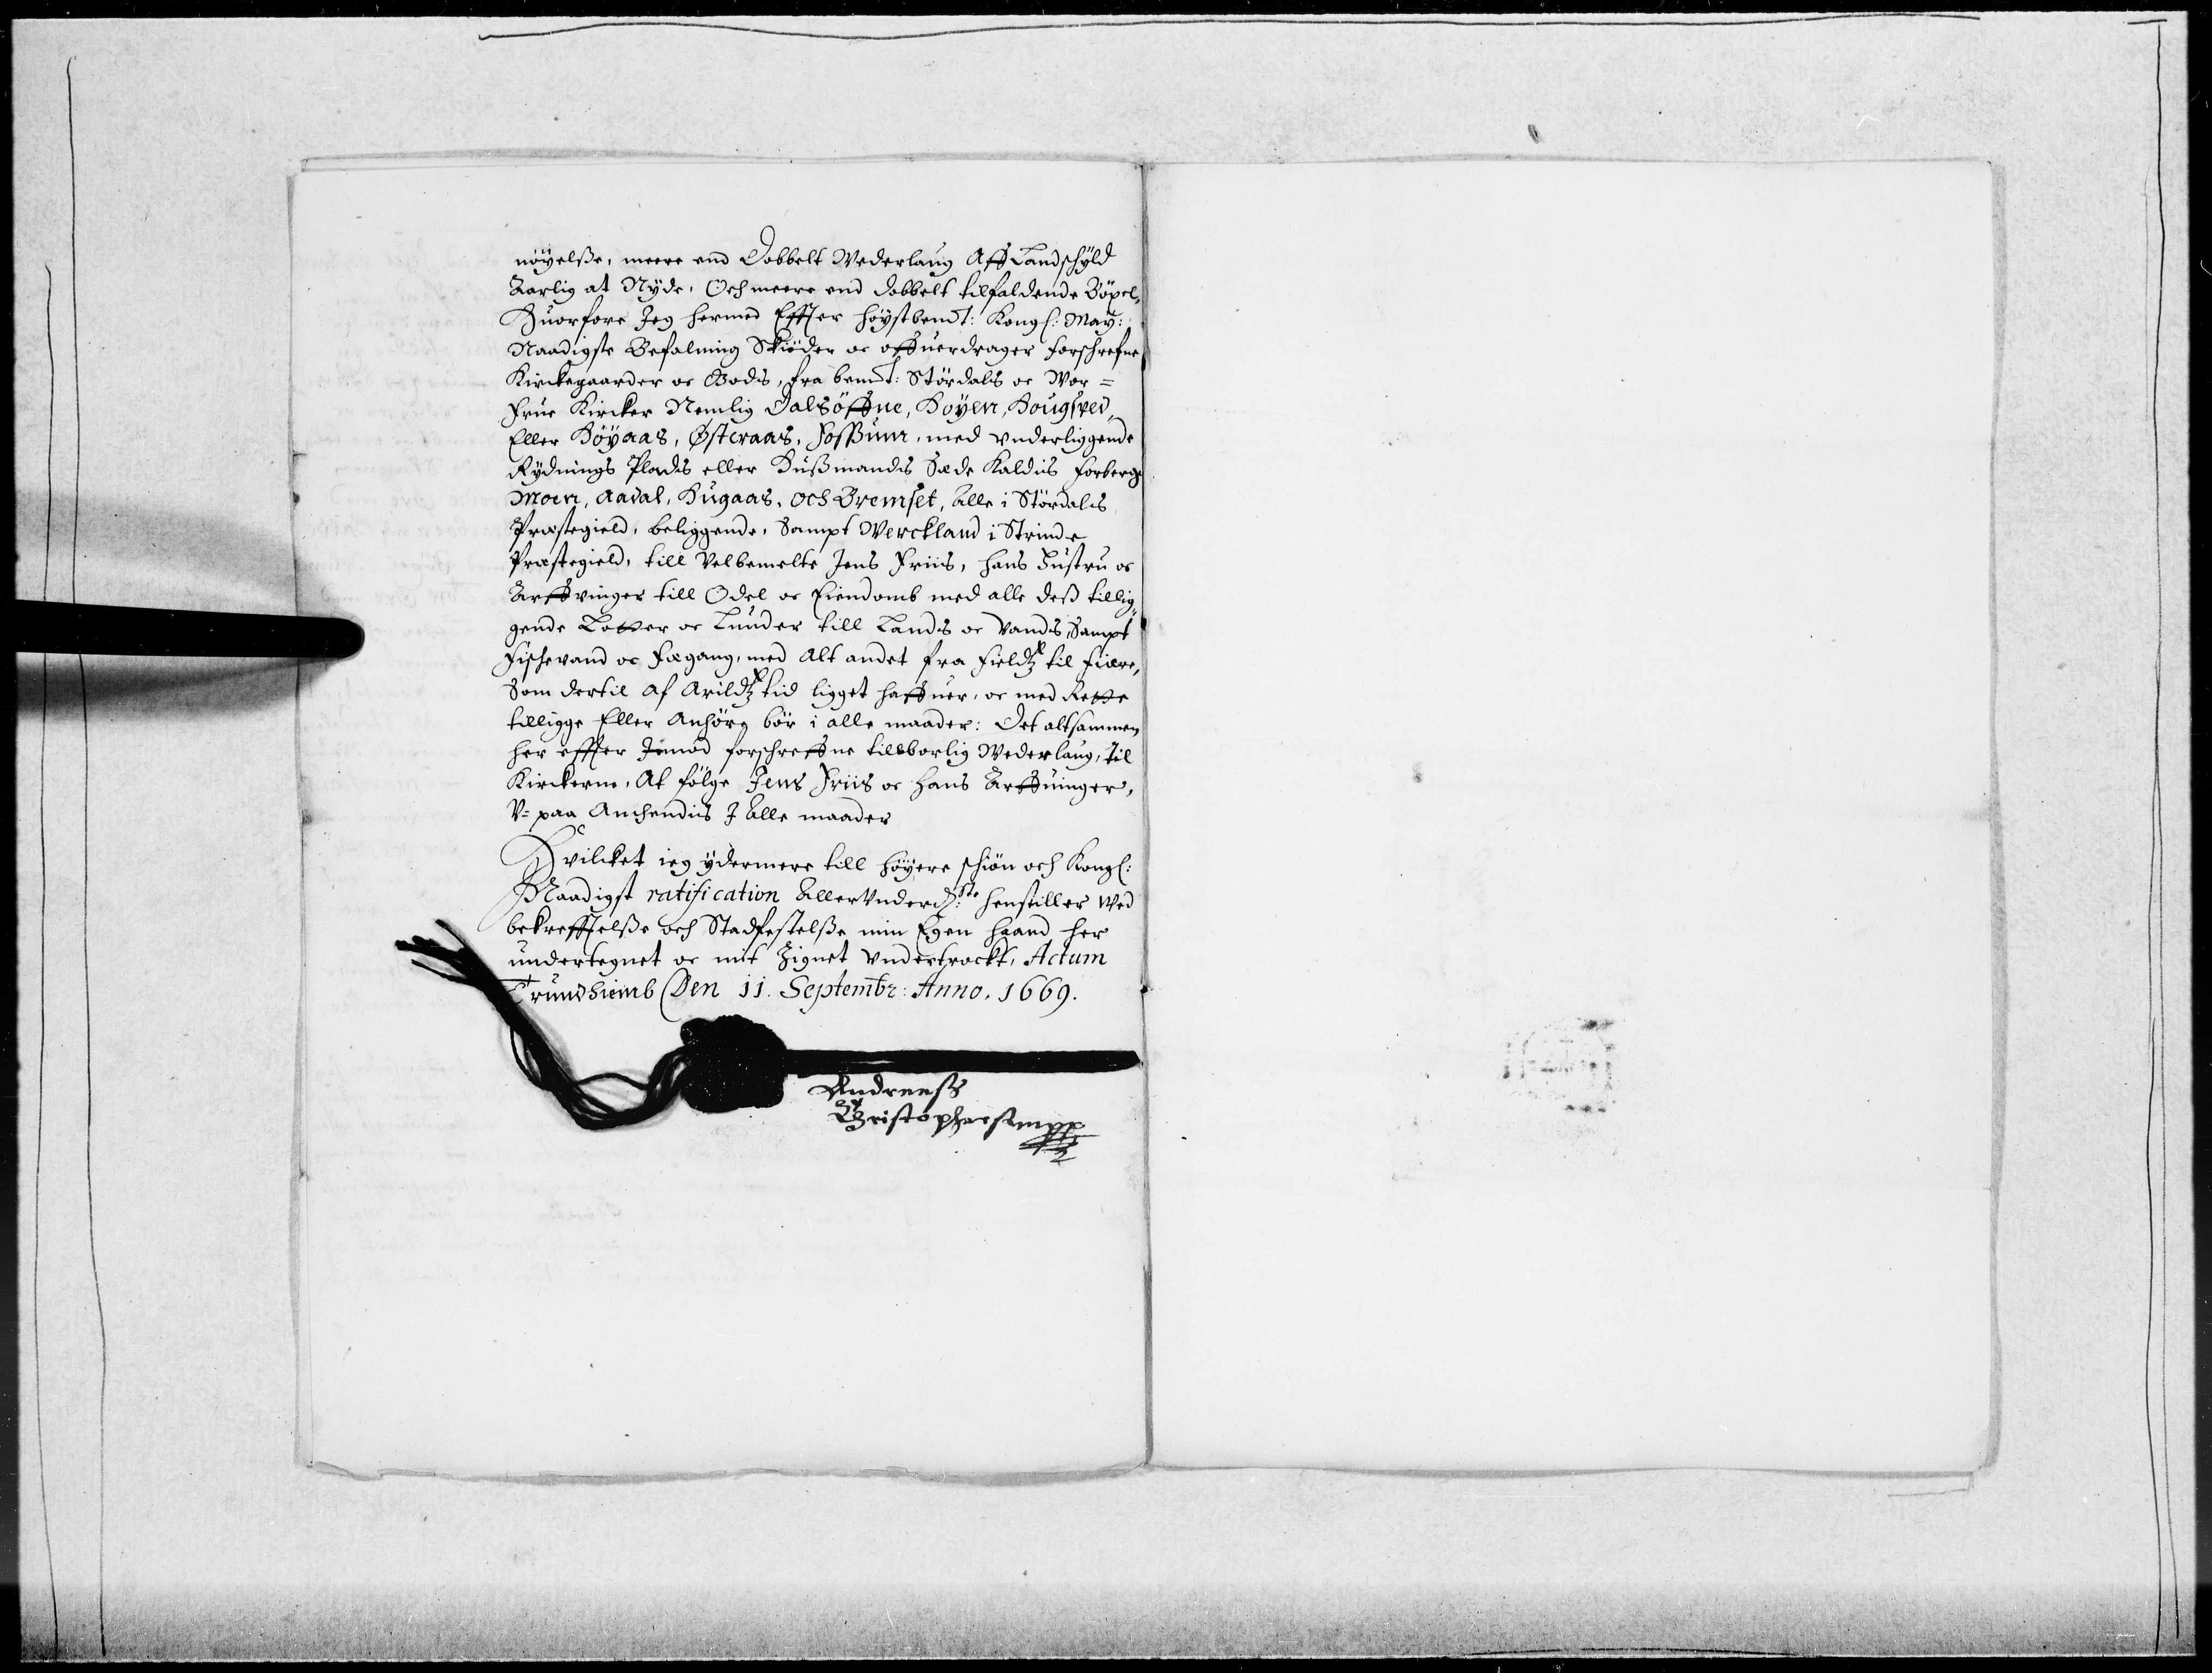 nöyelße, meere end Dobbelt Wederlaug Aff Landschyld
Aarlig at Nyde, Och meere end dobbelt tilfaldende Böxel,
Huorfore Jeg hermed Effter höystbemt: Kongl: May:
Naadigste Befalning Skiöder oc offuerdrager forschrefne
Kirckegaarder oc Godts, fra bemt: Stördals oc Wor=
Frue Kircker Nemlig Dalsöffne, Höyen, Hougsved,
Eller Höyaas, Østeraas, Foßum, med vnderliggende
Rydnings Plads eller Hußmands Sæde Kaldis Forberg
Moen, Aadal, Hugaas, och Bremset, Alle i Stördals
Præstegield, beliggende, Sampt Werckland i Strinde
Præstegield, till Velbemelte Jens Friis, hans Hustru oc
Arffvinger till Odel oc Eiendomb med alle deß tillig,
gende Lotter oc Lunder till Lands oc Vands, Sampt
Fischevand oc Fægang, med Alt andet fra Fieldtz til Fiære,
Som dertil af Arildtz tid ligget haffuer, oc med Rette
tilligge Eller Anhöre bör i alle maader: Det altsammen
her effter Jmod forschreffne tillborlig Wederlaug, til
Kirckerne, At fölge Jens Friis oc hans Arffuinger,
V=paa Anchendis J Alle maader
Hvilcket ieg ydermere till höyere schiön och Kongl:
Naadigst ratification Allervnderd:ste henstiller Wed
bekrefftelße och Stadfestelße min Egen haand her
undertegnet oc mit Zignet Vndertrockt, Actum
Trundhiemb Den 11. Septembr: Anno. 1669.
Andreas
Christophersen